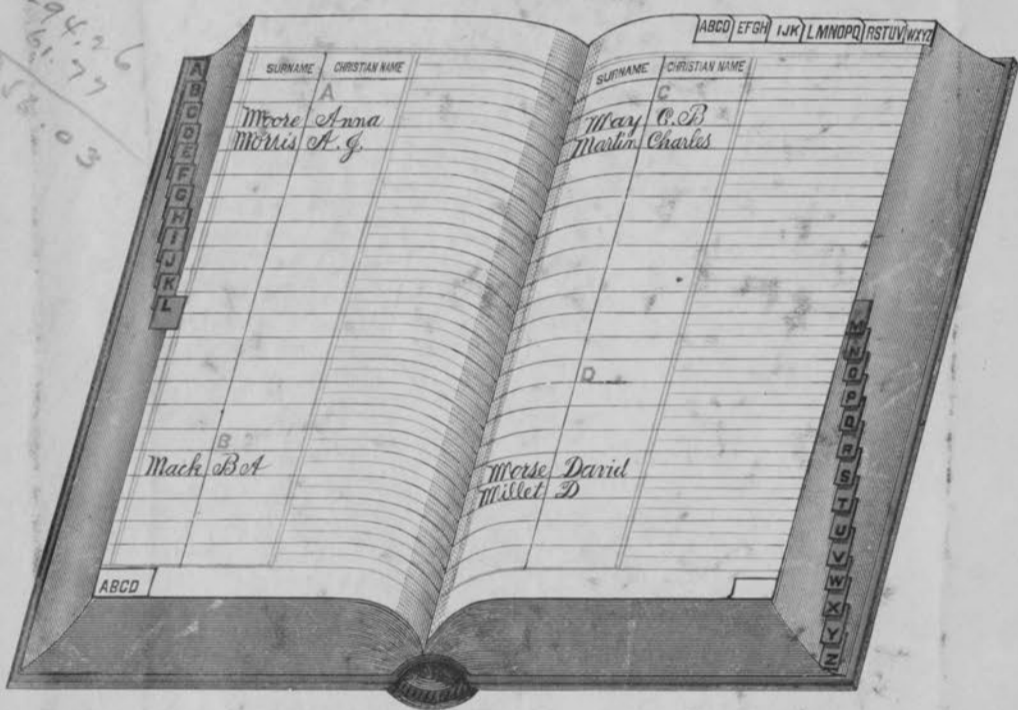 94.26
61.77
03
ABCD EFGH IJK LMNOPQ RSTUV WXYZ
A
B
C
D
E
F
G
H
I
J
K
L
SURNAME CHRISTIAN NAME
A
Moore Anna
Morris A. J.
B
Mack B A
ABCD
SURNAME CHRISTIAN NAME
C
May C. B
Martin Charles
D
Morse David
Millet D
M
N
O
P
Q
R
S
T
U
V
W
X
Y
Z